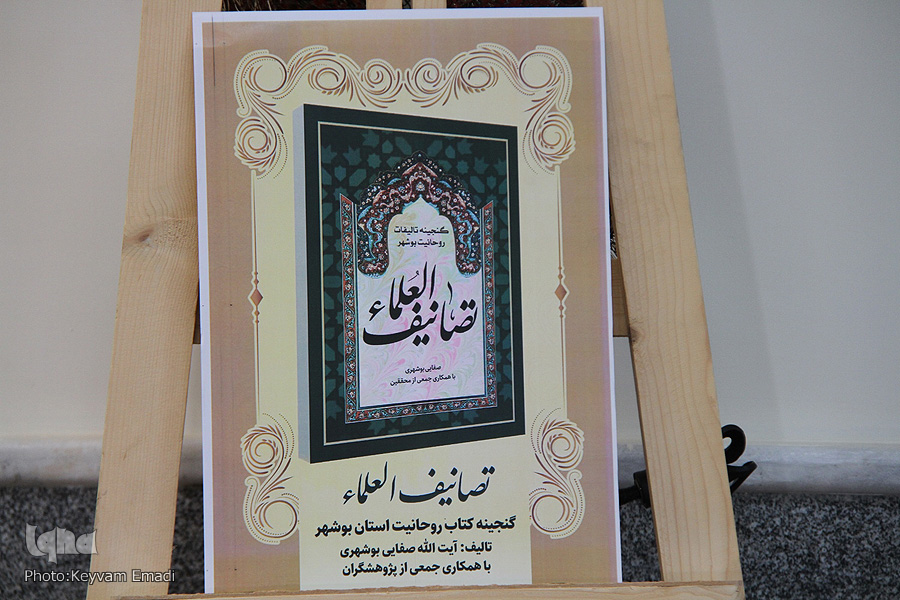 گنجینه تالیفات
روحانیت بوشهر
تصانیف العلماء
صفایی بوشهری
با همکاری جمعی از محققین
تصانیف العلماء
گنجینه کتاب روحانیت استان بوشهر
تالیف: آیت الله صفایی بوشهری
با همکاری جمعی از پژوهشگران
iqna
Photo:Keyvam Emadi